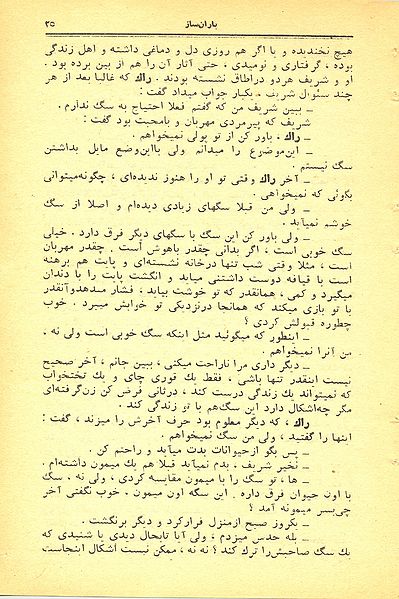 باران‌ساز ۳۵
هیچ نخندیده و یا اگر هم روزی دل و دماغی داشته و اهل زندگی
بوده ، گرفتاری و نومیدی ، حتی آثار آن را هم از بین برده بود .
او و شریف هردو دراطاق نشسته بودند . راك که غالبا بعد از هر
چند سئوال شریف ، یکبار جواب میداد گفت :
ـ ببین شریف من که گفتم فعلا احتیاج به سگ ندارم .
شریف که پیرمردی مهربان و بامحبت بود گفت :
ـ راك ، باور کن از تو پولی نمیخواهم .
ـ این‌موضوع را میدانم ولی بااین‌وضع مایل بداشتن
سگ نیستم .
ـ آخر راك وقتی تو او را هنوز ندیده‌ای ، چگونه‌میتوانی
بگوئی که نمیخواهی .
ـ ولی من قبلا سگهای زیادی دیده‌ام و اصلا از سگ
خوشم نمیآید .
ـ ولی باور کن این سگ با سگهای دیگر فرق دارد . خیلی
سگ خوبی است ، اگر بدانی چقدر باهوش است . چقدر مهربان
است ، مثلا وقتی شب تنها درخانه نشسته‌ای و پایت هم برهنه
است با قیافه دوست داشتنی میآید و انگشت پایت را با دندان
میگیرد و کمی ، همانقدر که تو خوشت بیاید ، فشار میدهدوآنقدر
با تو بازی میکند که همانجا درنزدیکی تو خوابش میبرد . خوب
چطوره قبولش کردی ؟
ـ اینطور که میگوئید مثل اینکه سگ خوبی است ولی نه .
من آنرا نمیخواهم
ـ دیگر داری مرا ناراحت میکنی ، ببین جانم ، آخر صحیح
نیست اینقدر تنها باشی ، فقط یك قوری چای و یك تختخواب
که نمیتواند یك زندگی درست کند ، درثانی فرض کن زن‌گرفته‌ای
مگر چه‌اشکال دارد این سگ‌هم با تو زندگی کند .
راك ، که دیگر معلوم بود حرف آخرش را میزند ، گفت :
اینها را گفتید ، ولی من سگ نمیخواهم .
ـ پس بگو ازحیوانات بدت میآید و راحتم کن .
ـ نخیر شریف ، بدم نمیآید قبلا هم یك میمون داشته‌ام .
ـ ها ، تو سگ را با میمون مقایسه کردی ، ولی نه ، سگ
با اون حیوان فرق داره . این سگه اون میمون . خوب نگفتی آخر
چی‌بسر میمونه آمد ؟
ـ یکروز صبح ازمنزل فرارکرد و دیگر برنگشت .
ـ بله حدس میزدم ، ولی آیا تابحال دیدی یا شنیدی که
یك سگ صاحبش‌را ترك کند ؟ نه نه ، ممکن نیست اشکال اینجاست